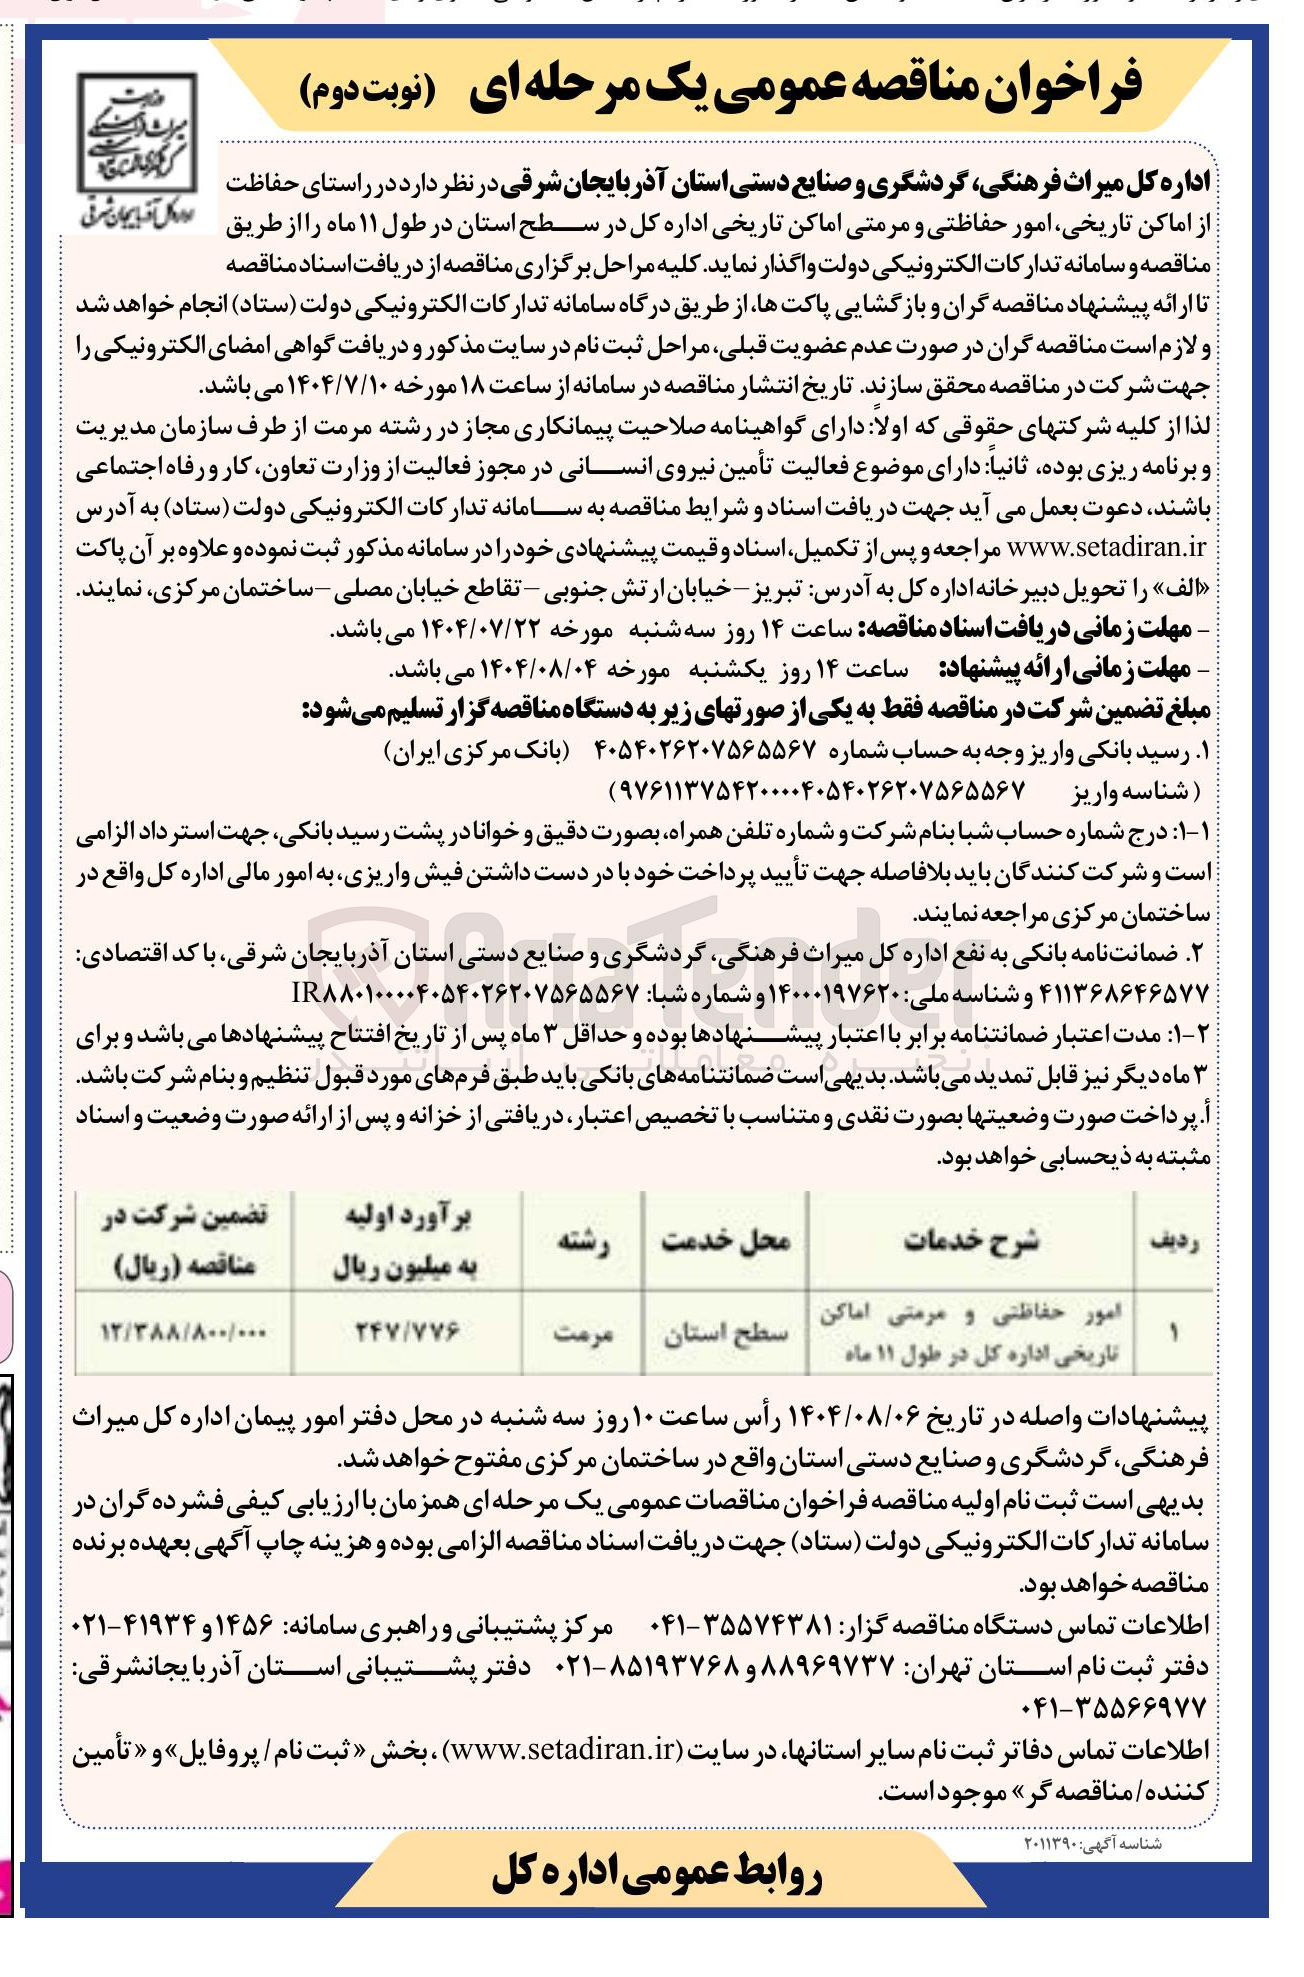 فراخوان مناقصه عمومی یک مرحله‌ای (نوبت دوم)
اداره کل آذربایجان شرقی
اداره کل میراث فرهنگی، گردشگری و صنایع دستی استان آذربایجان شرقی در نظر دارد در راستای حفاظت
از اماکن تاریخی، امور حفاظتی و مرمتی اماکن تاریخی اداره کل در سطح استان در طول ۱۱ ماه را از طریق
مناقصه و سامانه تدارکات الکترونیکی دولت واگذار نماید. کلیه مراحل برگزاری مناقصه از دریافت اسناد مناقصه
تا ارائه پیشنهاد مناقصه گران و بازگشایی پاکت ها، از طریق درگاه سامانه تدارکات الکترونیکی دولت (ستاد) انجام خواهد شد
و لازم است مناقصه گران در صورت عدم عضویت قبلی، مراحل ثبت نام در سایت مذکور و دریافت گواهی امضای الکترونیکی را
جهت شرکت در مناقصه محقق سازند. تاریخ انتشار مناقصه در سامانه از ساعت ۱۸ مورخه ۱۴۰۴/۷/۱۰ می باشد.
لذا از کلیه شرکتهای حقوقی که اولاً: دارای گواهینامه صلاحیت پیمانکاری مجاز در رشته مرمت از طرف سازمان مدیریت
و برنامه ریزی بوده، ثانیاً: دارای موضوع فعالیت تأمین نیروی انسانی در مجوز فعالیت از وزارت تعاون، کار و رفاه اجتماعی
باشند، دعوت بعمل می آید جهت دریافت اسناد و شرایط مناقصه به سامانه تدارکات الکترونیکی دولت (ستاد) به آدرس
www.setadiran.ir مراجعه و پس از تکمیل، اسناد و قیمت پیشنهادی خود را در سامانه مذکور ثبت نموده و علاوه بر آن پاکت
«الف» را تحویل دبیرخانه اداره کل به آدرس: تبریز – خیابان ارتش جنوبی – تقاطع خیابان مصلی – ساختمان مرکزی، نمایند.
- مهلت زمانی دریافت اسناد مناقصه: ساعت ۱۴ روز سه‌شنبه مورخه ۱۴۰۴/۰۷/۲۲ می باشد.
- مهلت زمانی ارائه پیشنهاد: ساعت ۱۴ روز یکشنبه مورخه ۱۴۰۴/۰۸/۰۴ می باشد.
مبلغ تضمین شرکت در مناقصه فقط به یکی از صورتهای زیر به دستگاه مناقصه گزار تسلیم می‌شود:
۱. رسید بانکی واریز وجه به حساب شماره ۴۰۵۴۰۲۶۲۰۷۵۶۵۵۶۷ (بانک مرکزی ایران)
( شناسه واریز ۹۷۶۱۱۳۷۵۴۲۰۰۰۰۴۰۵۴۰۲۶۲۰۷۵۶۵۵۶۷)
۱-۱: درج شماره حساب شبا بنام شرکت و شماره تلفن همراه، بصورت دقیق و خوانا در پشت رسید بانکی، جهت استرداد الزامی
است و شرکت کنندگان باید بلافاصله جهت تأیید پرداخت خود با در دست داشتن فیش واریزی، به امور مالی اداره کل واقع در
ساختمان مرکزی مراجعه نمایند.
۲. ضمانت‌نامه بانکی به نفع اداره کل میراث فرهنگی، گردشگری و صنایع دستی استان آذربایجان شرقی، با کد اقتصادی:
۴۱۱۳۶۸۶۴۶۵۷۷ و شناسه ملی: ۱۴۰۰۰۱۹۷۶۲۰ و شماره شبا: IR۸۸۰۱۰۰۰۰۴۰۵۴۰۲۶۲۰۷۵۶۵۵۶۷
۲-۱: مدت اعتبار ضمانتنامه برابر با اعتبار پیشنهادها بوده و حداقل ۳ ماه پس از تاریخ افتتاح پیشنهادها می باشد و برای
۳ ماه دیگر نیز قابل تمدید می‌باشد. بدیهی است ضمانتنامه‌های بانکی باید طبق فرم‌های مورد قبول تنظیم و بنام شرکت باشد.
أ. پرداخت صورت وضعیتها بصورت نقدی و متناسب با تخصیص اعتبار، دریافتی از خزانه و پس از ارائه صورت وضعیت و اسناد
مثبته به ذیحسابی خواهد بود.
ردیف شرح خدمات محل خدمت رشته برآورد اولیه به میلیون ریال تضمین شرکت در مناقصه (ریال)
۱ امور حفاظتی و مرمتی اماکن تاریخی اداره کل در طول ۱۱ ماه سطح استان مرمت ۲۴۷/۷۷۶ ۱۲/۳۸۸/۸۰۰/۰۰۰
پیشنهادات واصله در تاریخ ۱۴۰۴/۰۸/۰۶ رأس ساعت ۱۰ روز سه شنبه در محل دفتر امور پیمان اداره کل میراث
فرهنگی، گردشگری و صنایع دستی استان واقع در ساختمان مرکزی مفتوح خواهد شد.
بدیهی است ثبت نام اولیه مناقصه فراخوان مناقصات عمومی یک مرحله ای همزمان با ارزیابی کیفی فشرده گران در
سامانه تدارکات الکترونیکی دولت (ستاد) جهت دریافت اسناد مناقصه الزامی بوده و هزینه چاپ آگهی بعهده برنده
مناقصه خواهد بود.
اطلاعات تماس دستگاه مناقصه گزار: ۳۵۵۷۴۳۸۱-۰۴۱ مرکز پشتیبانی و راهبری سامانه: ۱۴۵۶ و ۴۱۹۳۴-۰۲۱
دفتر ثبت نام استان تهران: ۸۸۹۶۹۷۳۷ و ۸۵۱۹۳۷۶۸-۰۲۱ دفتر پشتیبانی استان آذربایجانشرقی:
۳۵۵۶۶۹۷۷-۰۴۱
اطلاعات تماس دفاتر ثبت نام سایر استانها، در سایت (www.setadiran.ir)، بخش «ثبت نام / پروفایل» و «تأمین
کننده/مناقصه گر» موجود است.
شناسه آگهی: ۲۰۱۱۳۹۰
روابط عمومی اداره کل
AriaTender